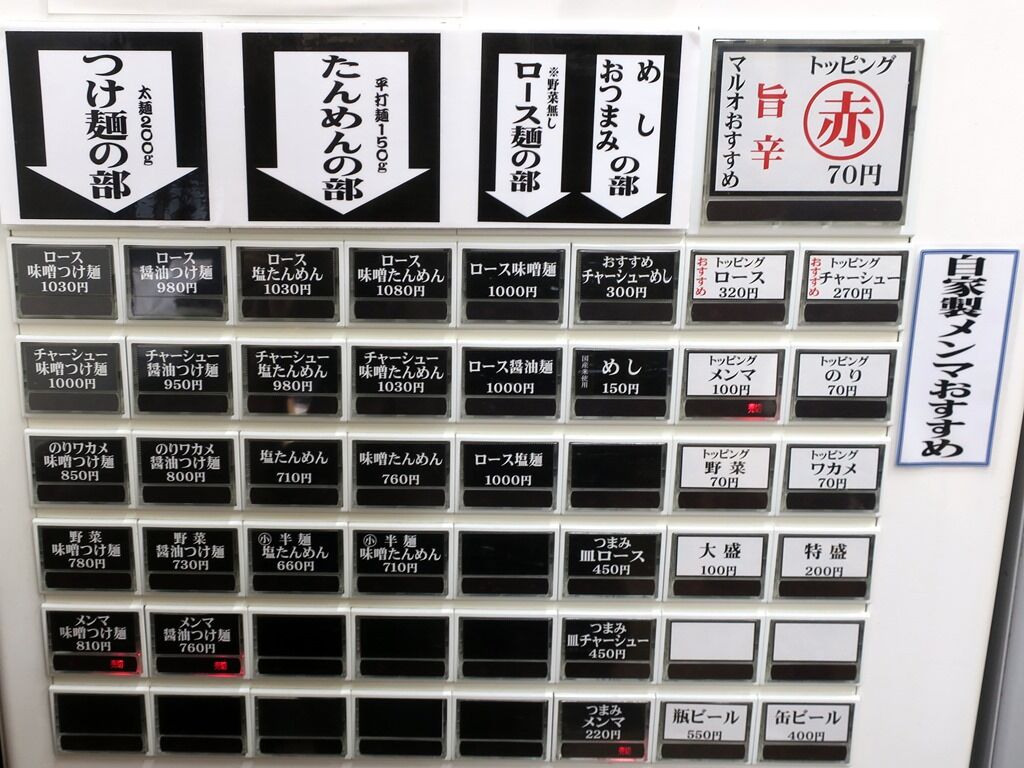 つけ麺の部
太麺200g
たんめんの部
平打麺150g
めし
おつまみの部
※野菜無し
ロース麺の部
トッピング
赤
70円
旨辛
マルオおすすめ
ロース
味噌つけ麺
1030円
ロース
醤油つけ麺
980円
ロース
塩たんめん
1030円
ロース
味噌たんめん
1080円
ロース味噌麺
1000円
おすすめ
チャーシューめし
300円
おすすめ
トッピング
ロース
320円
おすすめ
トッピング
チャーシュー
270円
チャーシュー
味噌つけ麺
1000円
チャーシュー
醤油つけ麺
950円
チャーシュー
塩たんめん
980円
チャーシュー
味噌たんめん
1030円
ロース醤油麺
1000円
国産米使用
めし
150円
トッピング
メンマ
100円
売切
トッピング
のり
70円
のりワカメ
味噌つけ麺
850円
のりワカメ
醤油つけ麺
800円
塩たんめん
710円
味噌たんめん
760円
ロース塩麺
1000円
トッピング
野菜
70円
トッピング
ワカメ
70円
野菜
味噌つけ麺
780円
野菜
醤油つけ麺
730円
小 半麺
塩たんめん
660円
小 半麺
味噌たんめん
710円
つまみ
皿ロース
450円
大盛
100円
特盛
200円
メンマ
味噌つけ麺
810円
売切
メンマ
醤油つけ麺
760円
売切
つまみ
皿チャーシュー
450円
つまみ
メンマ
220円
売切
瓶ビール
550円
缶ビール
400円
自家製メンマおすすめ